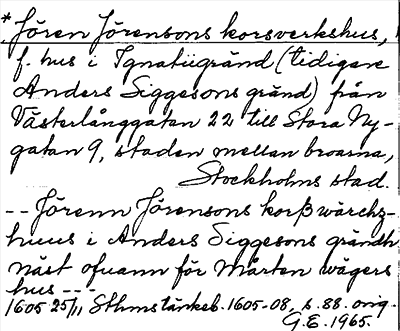 * Jören Jörensons korsverkshus,
f. hus i Ignatiigränd (tidigare
Anders Siggesons gränd) från
Västerlånggatan 22 till Stora Ny-
gatan 9, staden mellan broarna,
Stockholms stad.
-- Jörenn Jörensons korßwärchz-
huus i Anders Siggesons grändh
näst ofuann för Mårten wägers
hus ---
1605 25/11 Sthmstänkeb. 1605-08, s. 88. orig.
G.E. 1965.